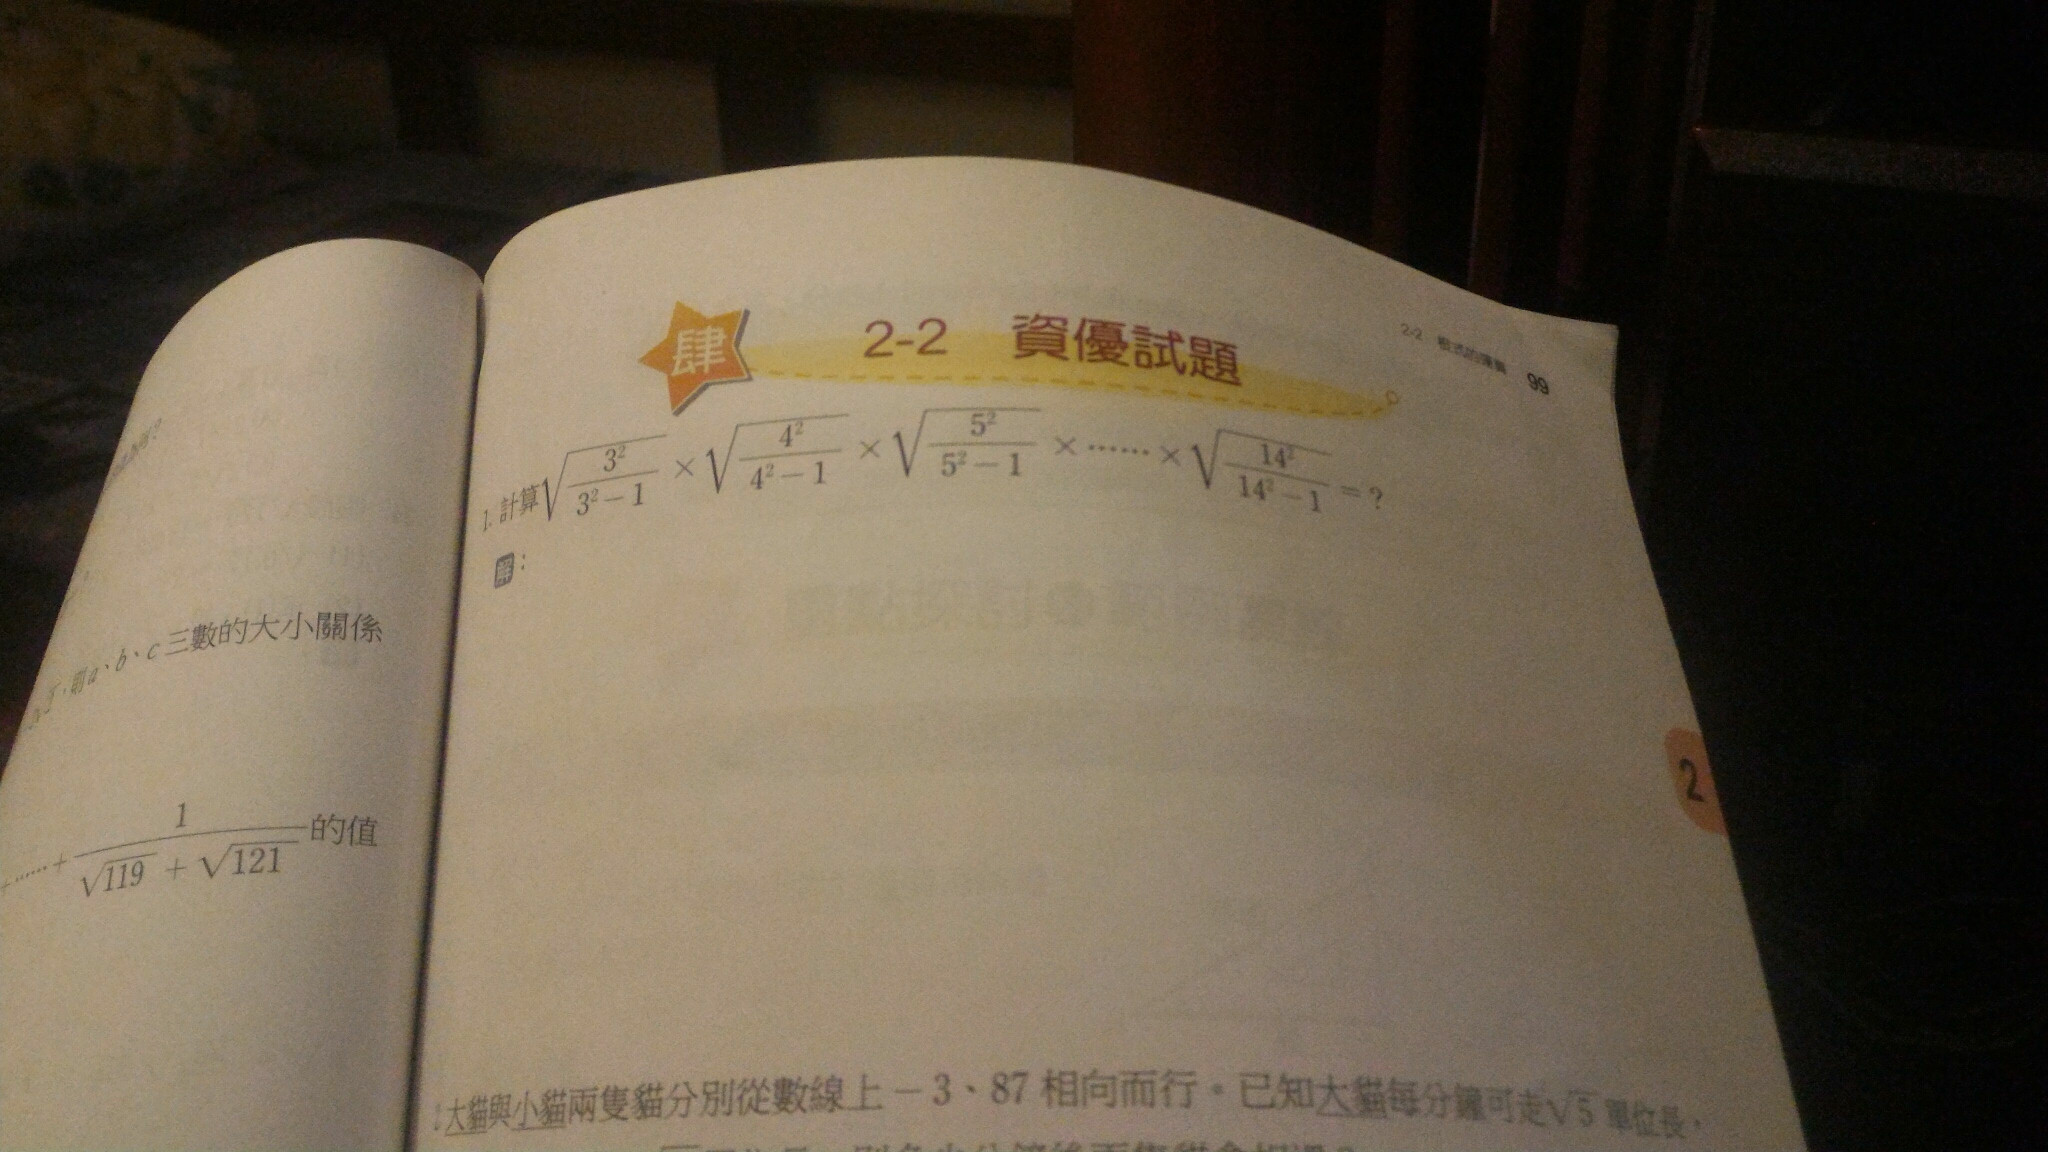 三數的大小關係
則a、b、c
……+ 1/(√119 + √121) 的值
2-2 根式的運算 99
肆 2-2 資優試題
1. 計算√(3²/(3²−1)) × √(4²/(4²−1)) × √(5²/(5²−1)) × …… × √(14²/(14²−1)) = ?
解:
2
2.大貓與小貓兩隻貓分別從數線上−3、87相向而行。已知大貓每分鐘可走√5單位長,